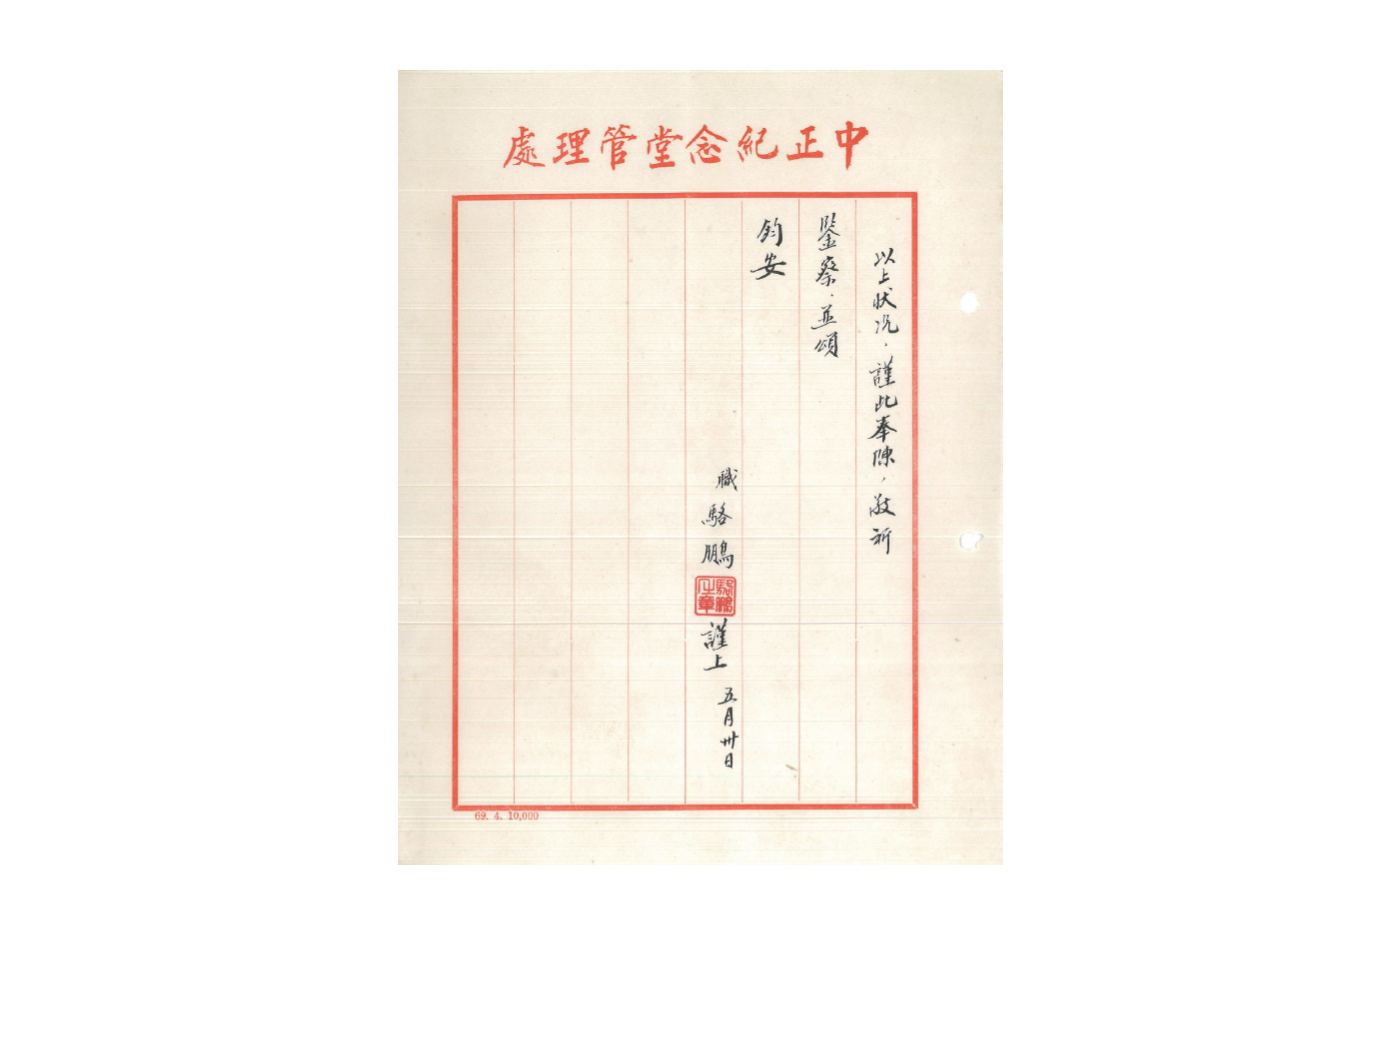 中正紀念堂管理處
以上狀況，謹此奉陳，敬祈
鑒察，並頌
鈞安
職駱鵬
駱鵬之章
謹上
五月卅日
69. 4. 10,000